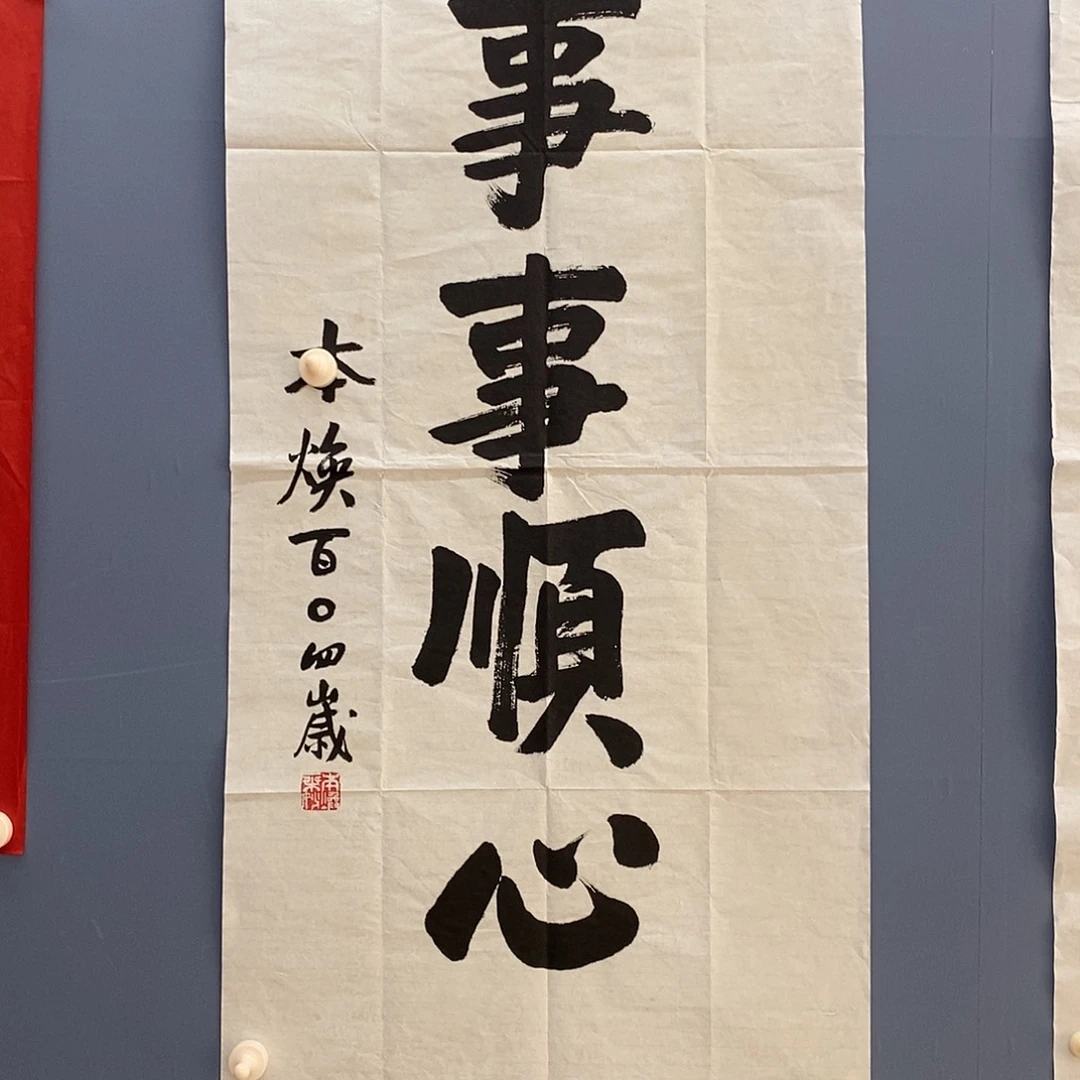 事事順心
本煥百〇四歲